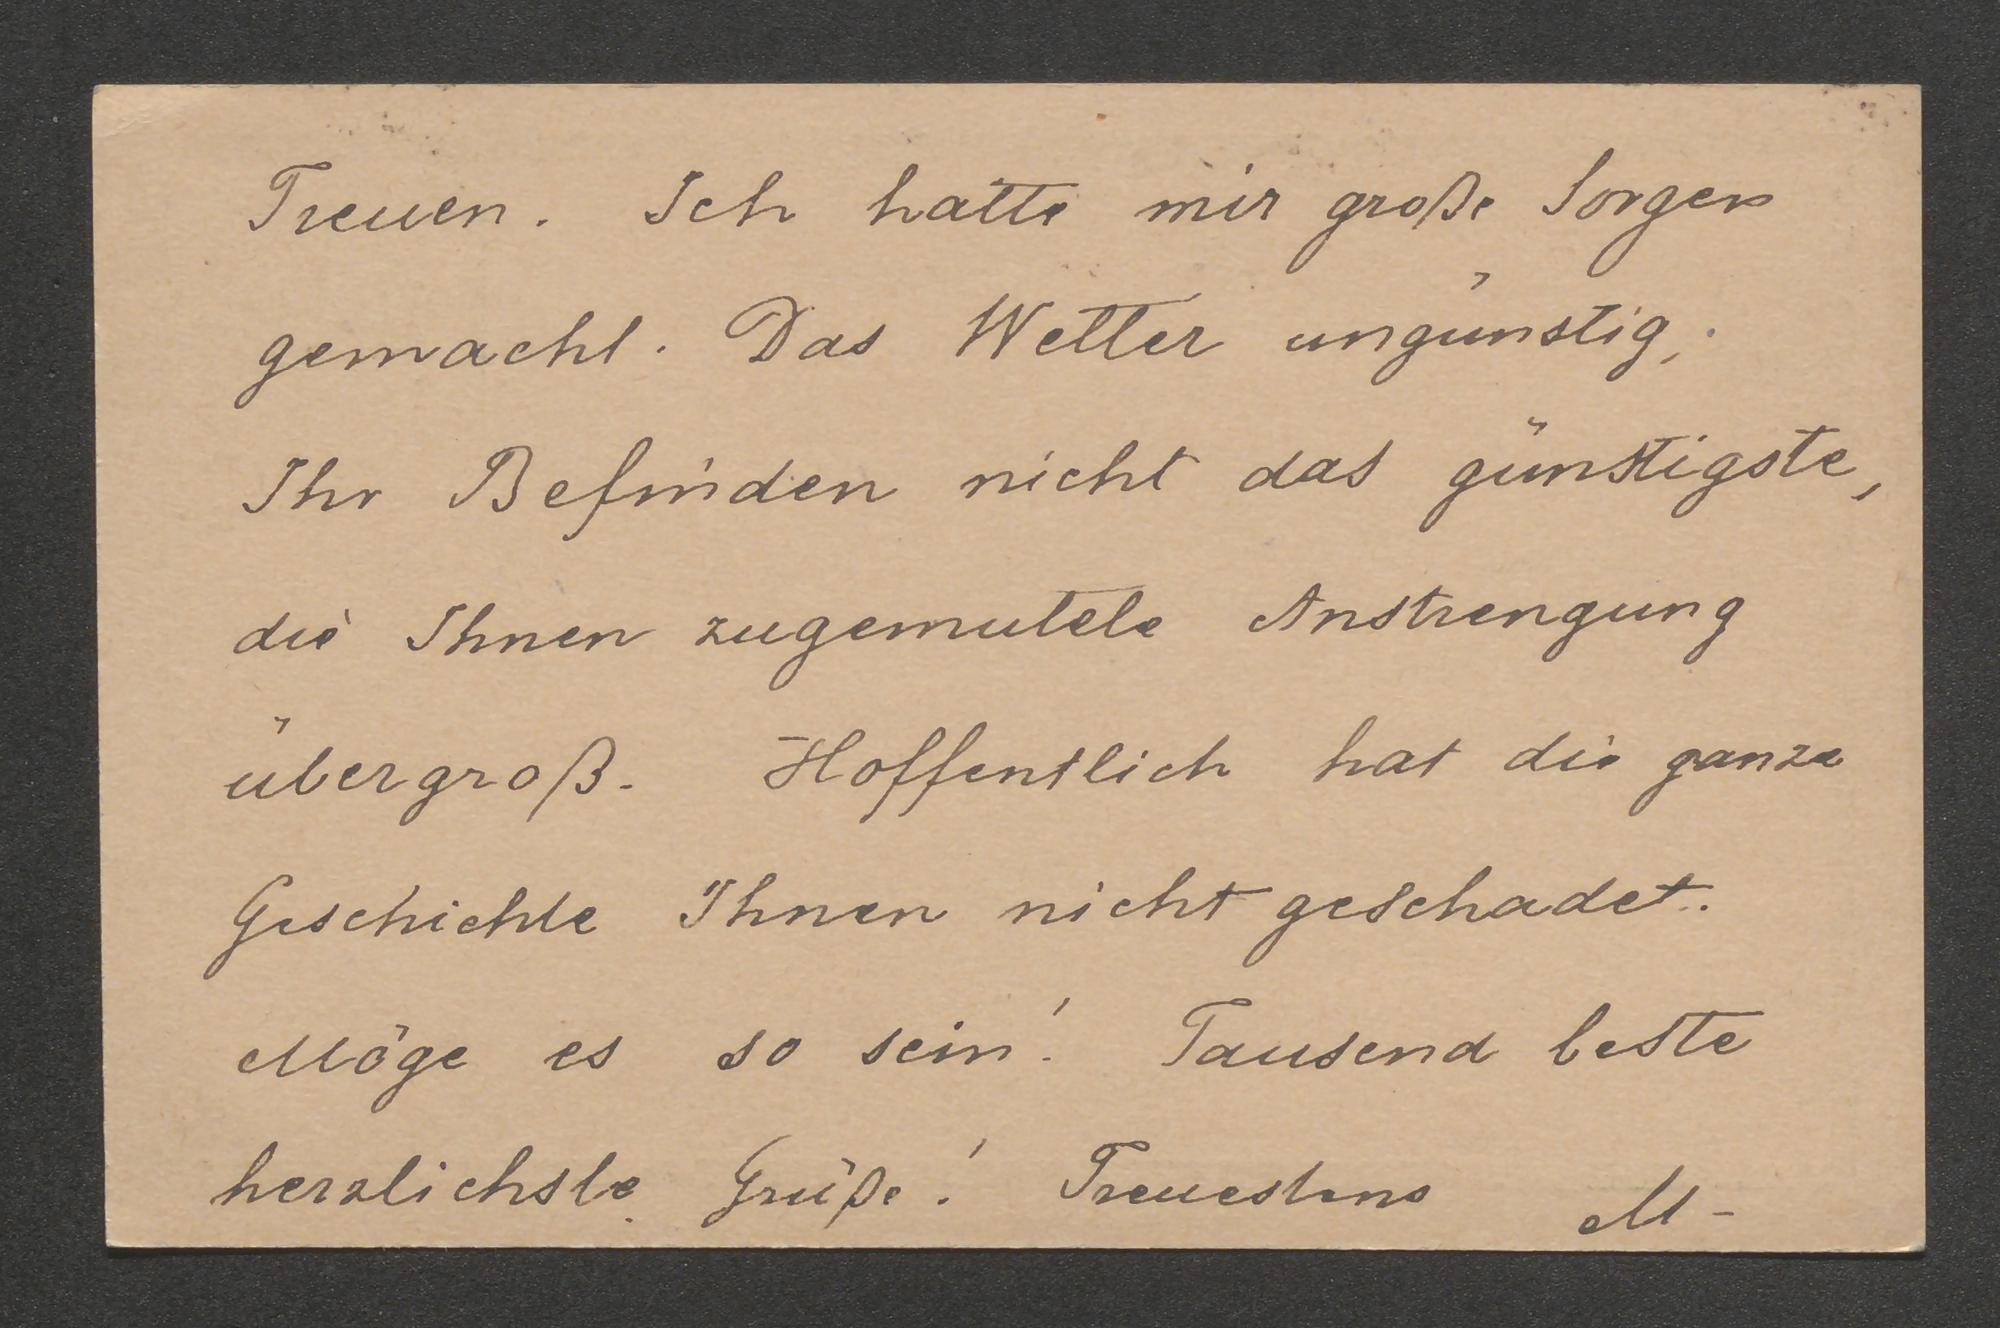 Treuen. Ich hatte mir große Sorgen
gemacht. Das Wetter ungünstig,
Ihr Befinden nicht das günstigste,
die Ihnen zugemutete Anstrengung
übergroß. Hoffentlich hat die ganze
Geschichte Ihnen nicht geschadet.
Möge es so sein! Tausend beste
herzlichste Grüße! Treuestens M-